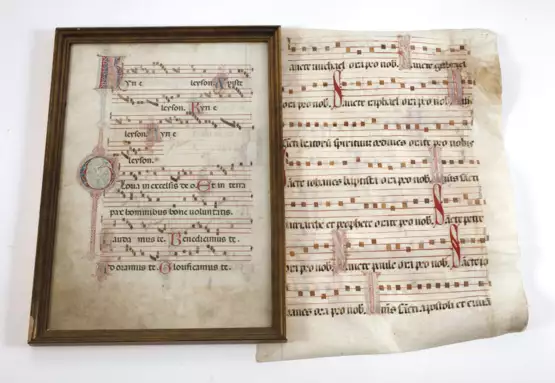 Kyrie
leyson. Kyrie
leyson. Kyrie
leyson. Kyrie
leyson.
Gloria in excelsis deo. Et in terra
pax hominibus bone voluntatis.
Laudamus te. Benedicimus te.
Adoramus te. Glorificamus te.
Sancte gabriel
ora pro nob. Sancte raphael ora pro nob.
spirituum ordines orate pro nobis
Sancte iohannes baptista ora pro nob. Omnes sancti
patriarche et prophete orate pro nob. Sancte petre
ora pro nob. Sancte paule ora pro nob. Sancte
ora pro nob. Omnes sancti apostoli et